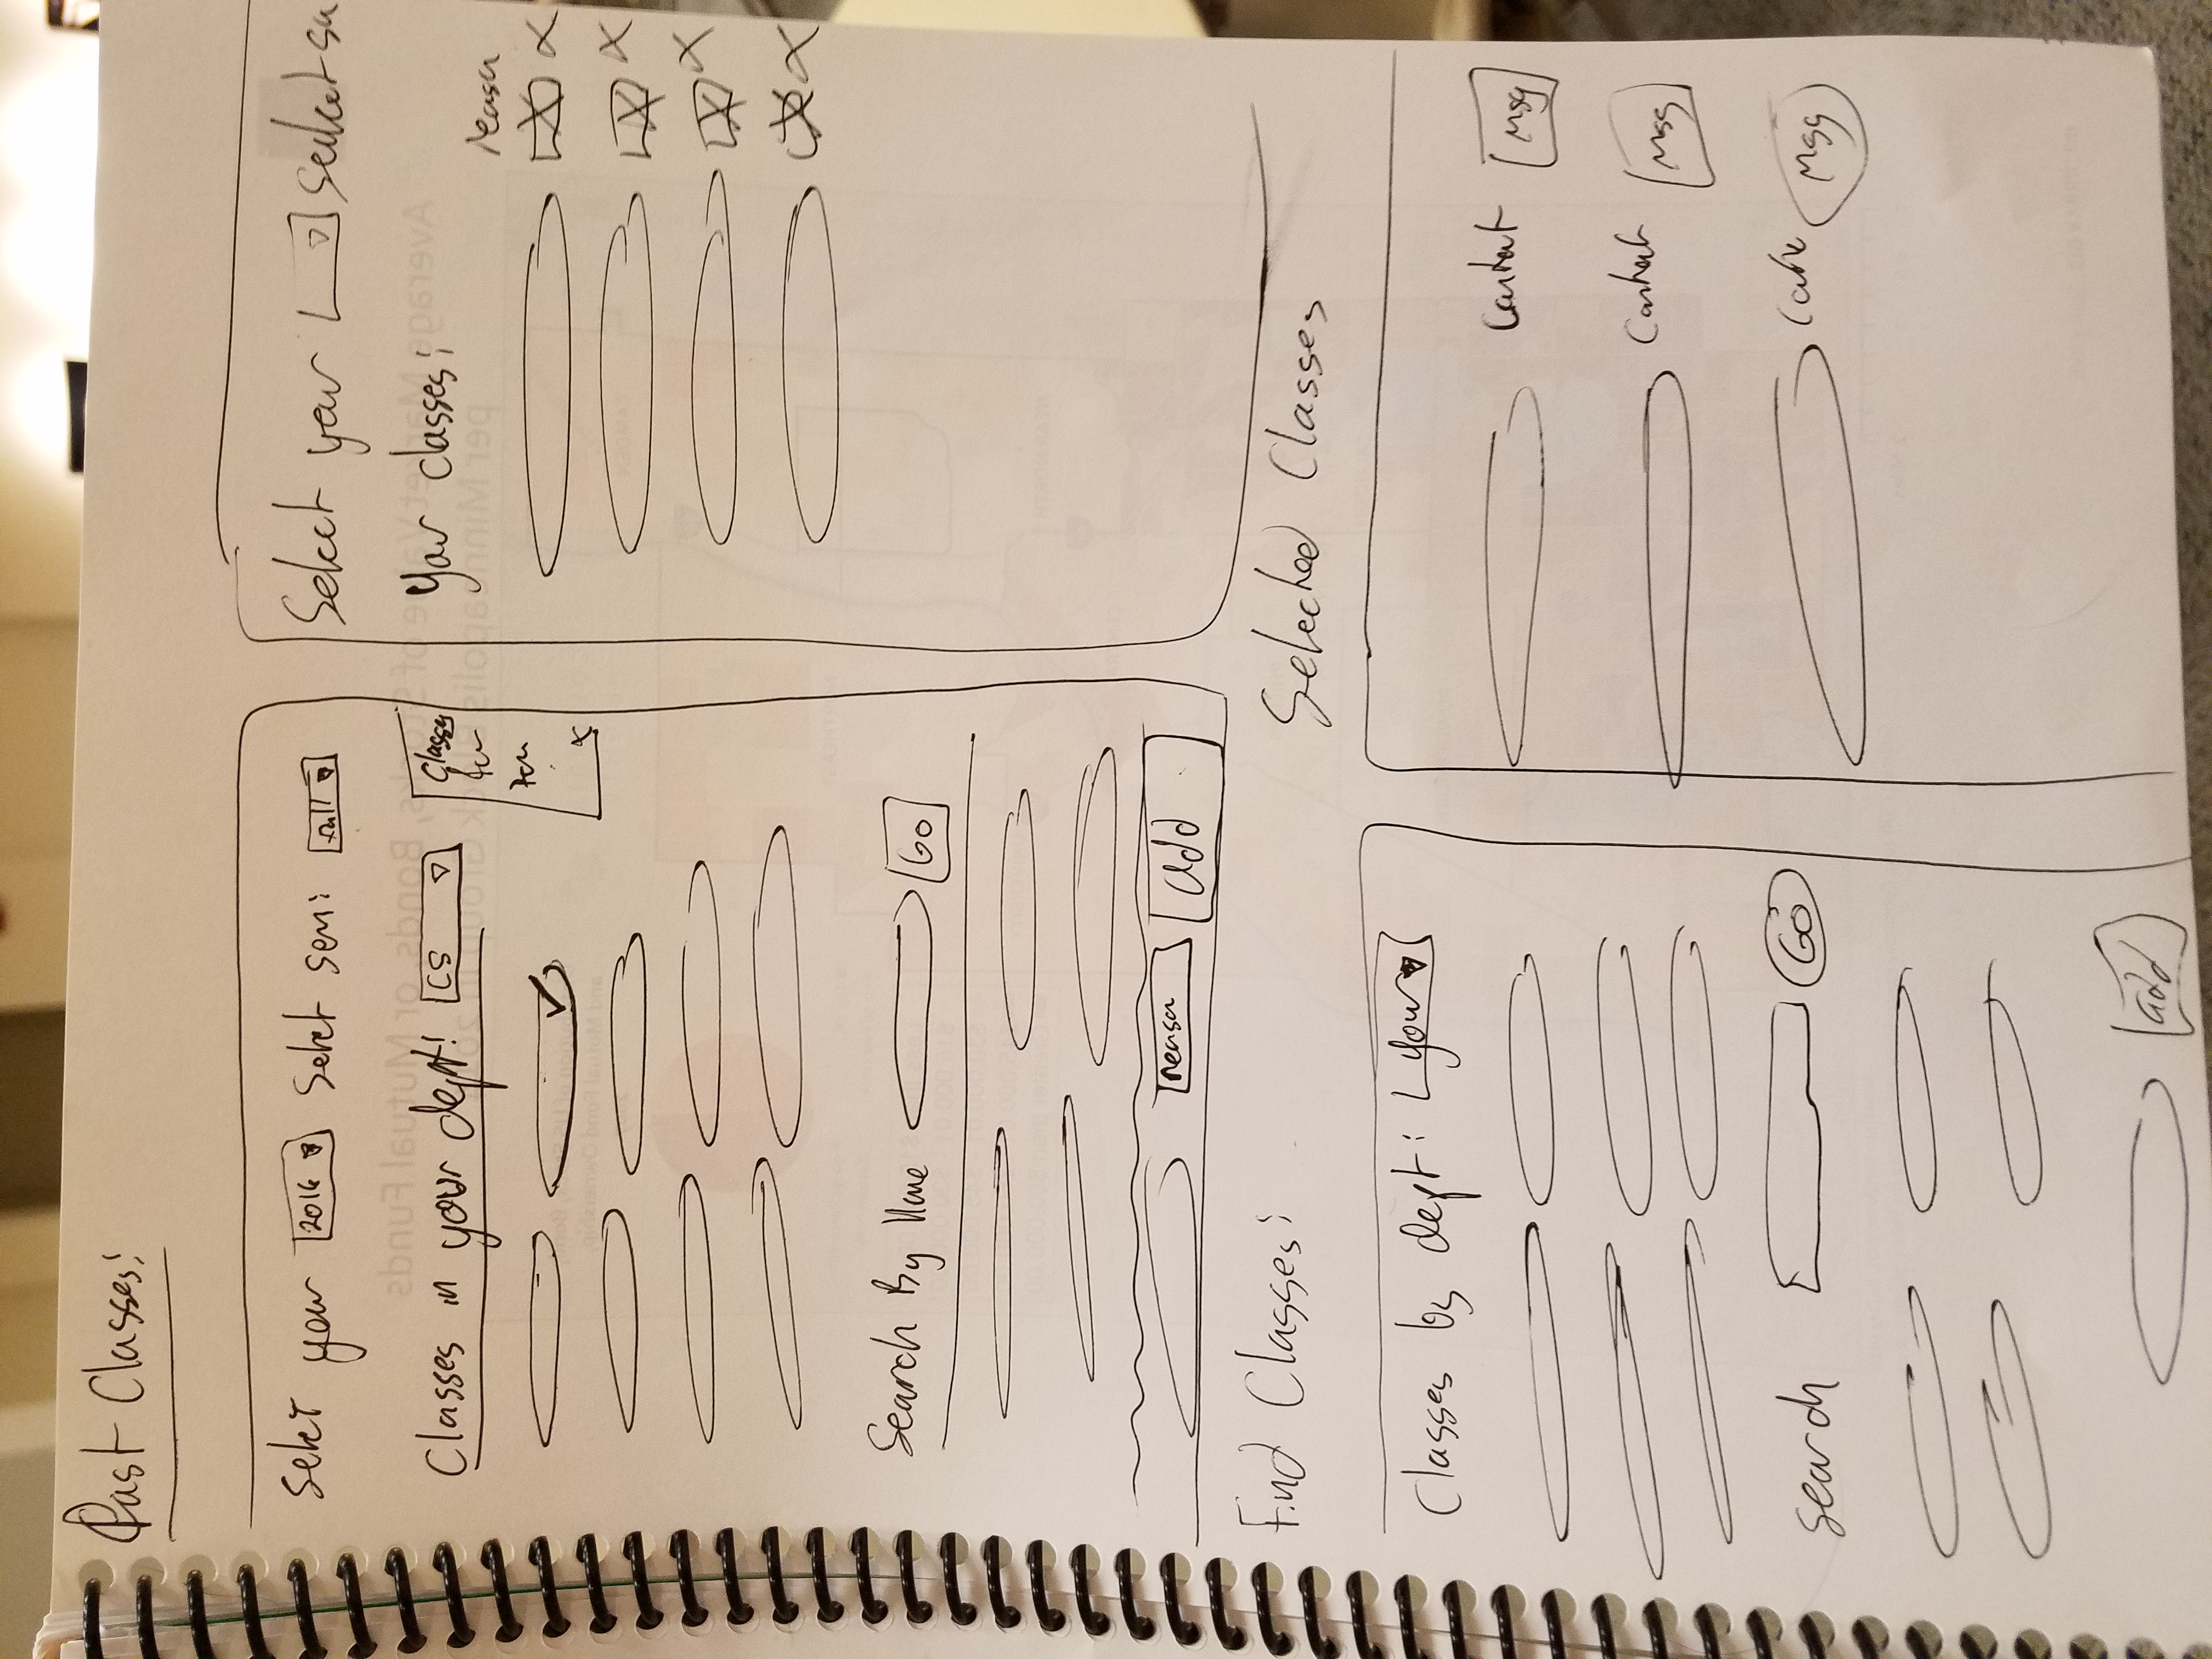 Past Classes:
Select year 2016 Select sem: Fall
Classes in your dept: CS
Classes
for
Search By Name Go
reason add
Select year Select
Your classes:
reason
Find Classes:
Classes by dept: your
search Go
add
Selected Classes
Contact Msg
Contact Msg
Msg